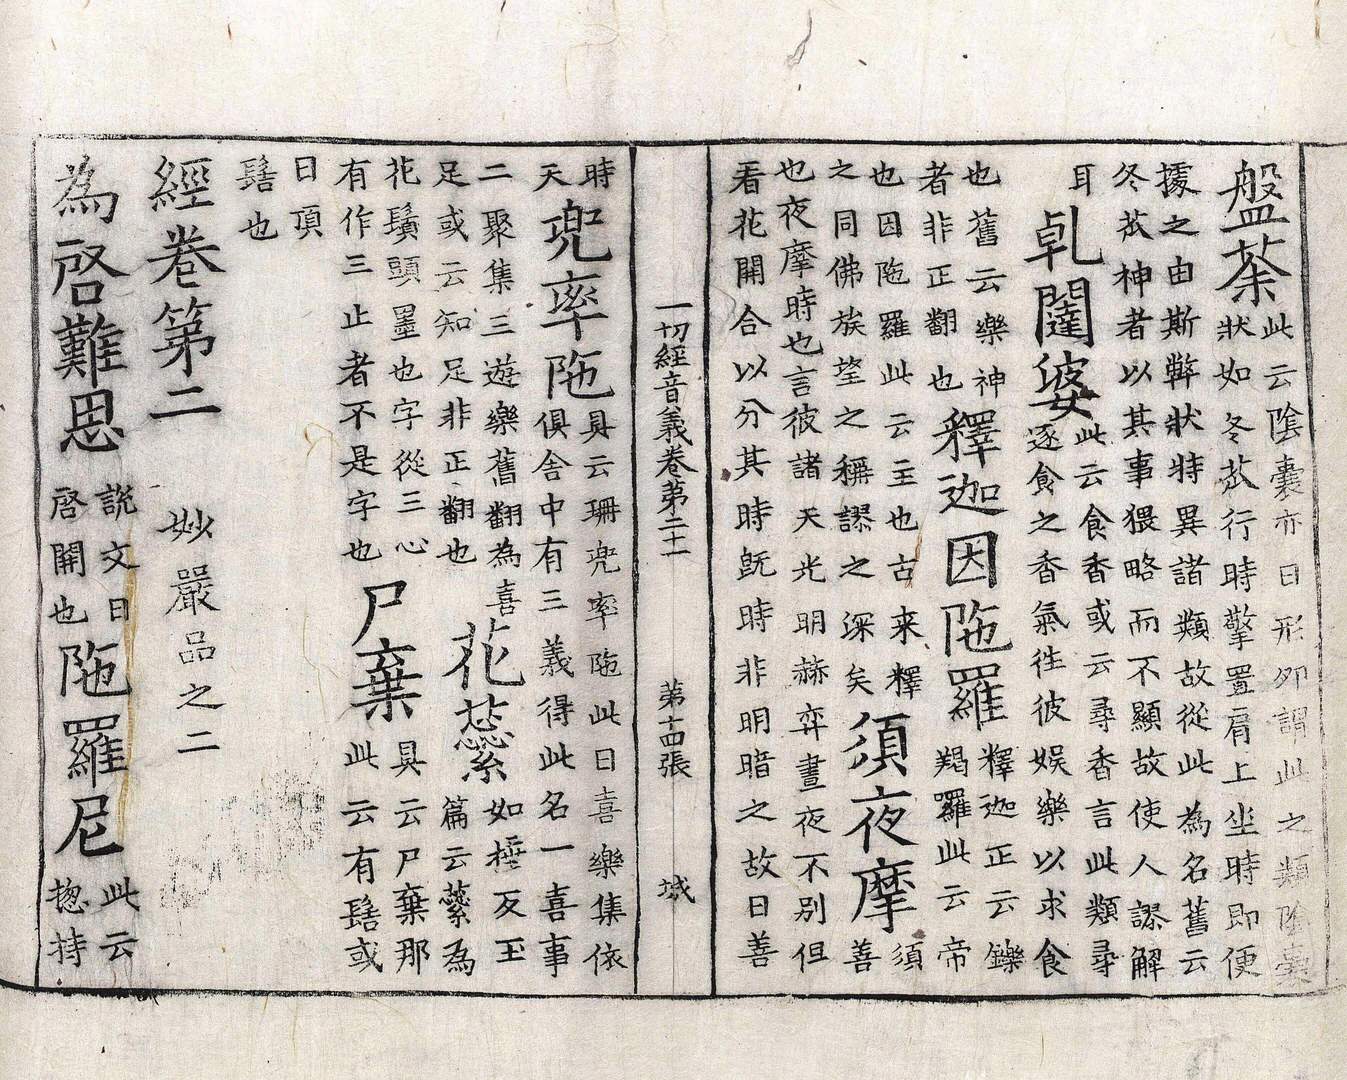 盤荼此云陰囊亦曰形卵謂此之類陰囊
狀如冬苽行時擎置肩上坐時即便
據之由斯弊狀特異諸類故從此為名舊云
冬苽神者以其事猥略而不顯故使人謬解
耳
乹闥婆此云食香或云尋香言此類尋
逐食之香氣往彼娛樂以求食
也舊云樂神
者非正翻也
釋迦因陁羅釋迦正云鑠
羯羅此云帝
也因陁羅此云主也古来釋
之同佛族望之稱謬之深矣
須夜摩須
善
也夜摩時也言彼諸天光明赫弈晝夜不別但
看花開合以分其時既時非明暗之故曰善
一切經音義卷第二十一 第十四張 城
時
天
兜率陁具云珊兜率陁此曰喜樂集依
俱舍中有三義得此名一喜事
二聚集三遊樂舊翻為喜
足或云知足非正翻也
花蘂如棰反玉
篇云蘂為
花鬚頭墨也字從三心
有作三止者不是字也
尸棄具云尸棄那
此云有髻或
曰頂
髻也
經卷第二 妙嚴品之二
為啓難思說文曰
啓開也
陁羅尼此云
揔持